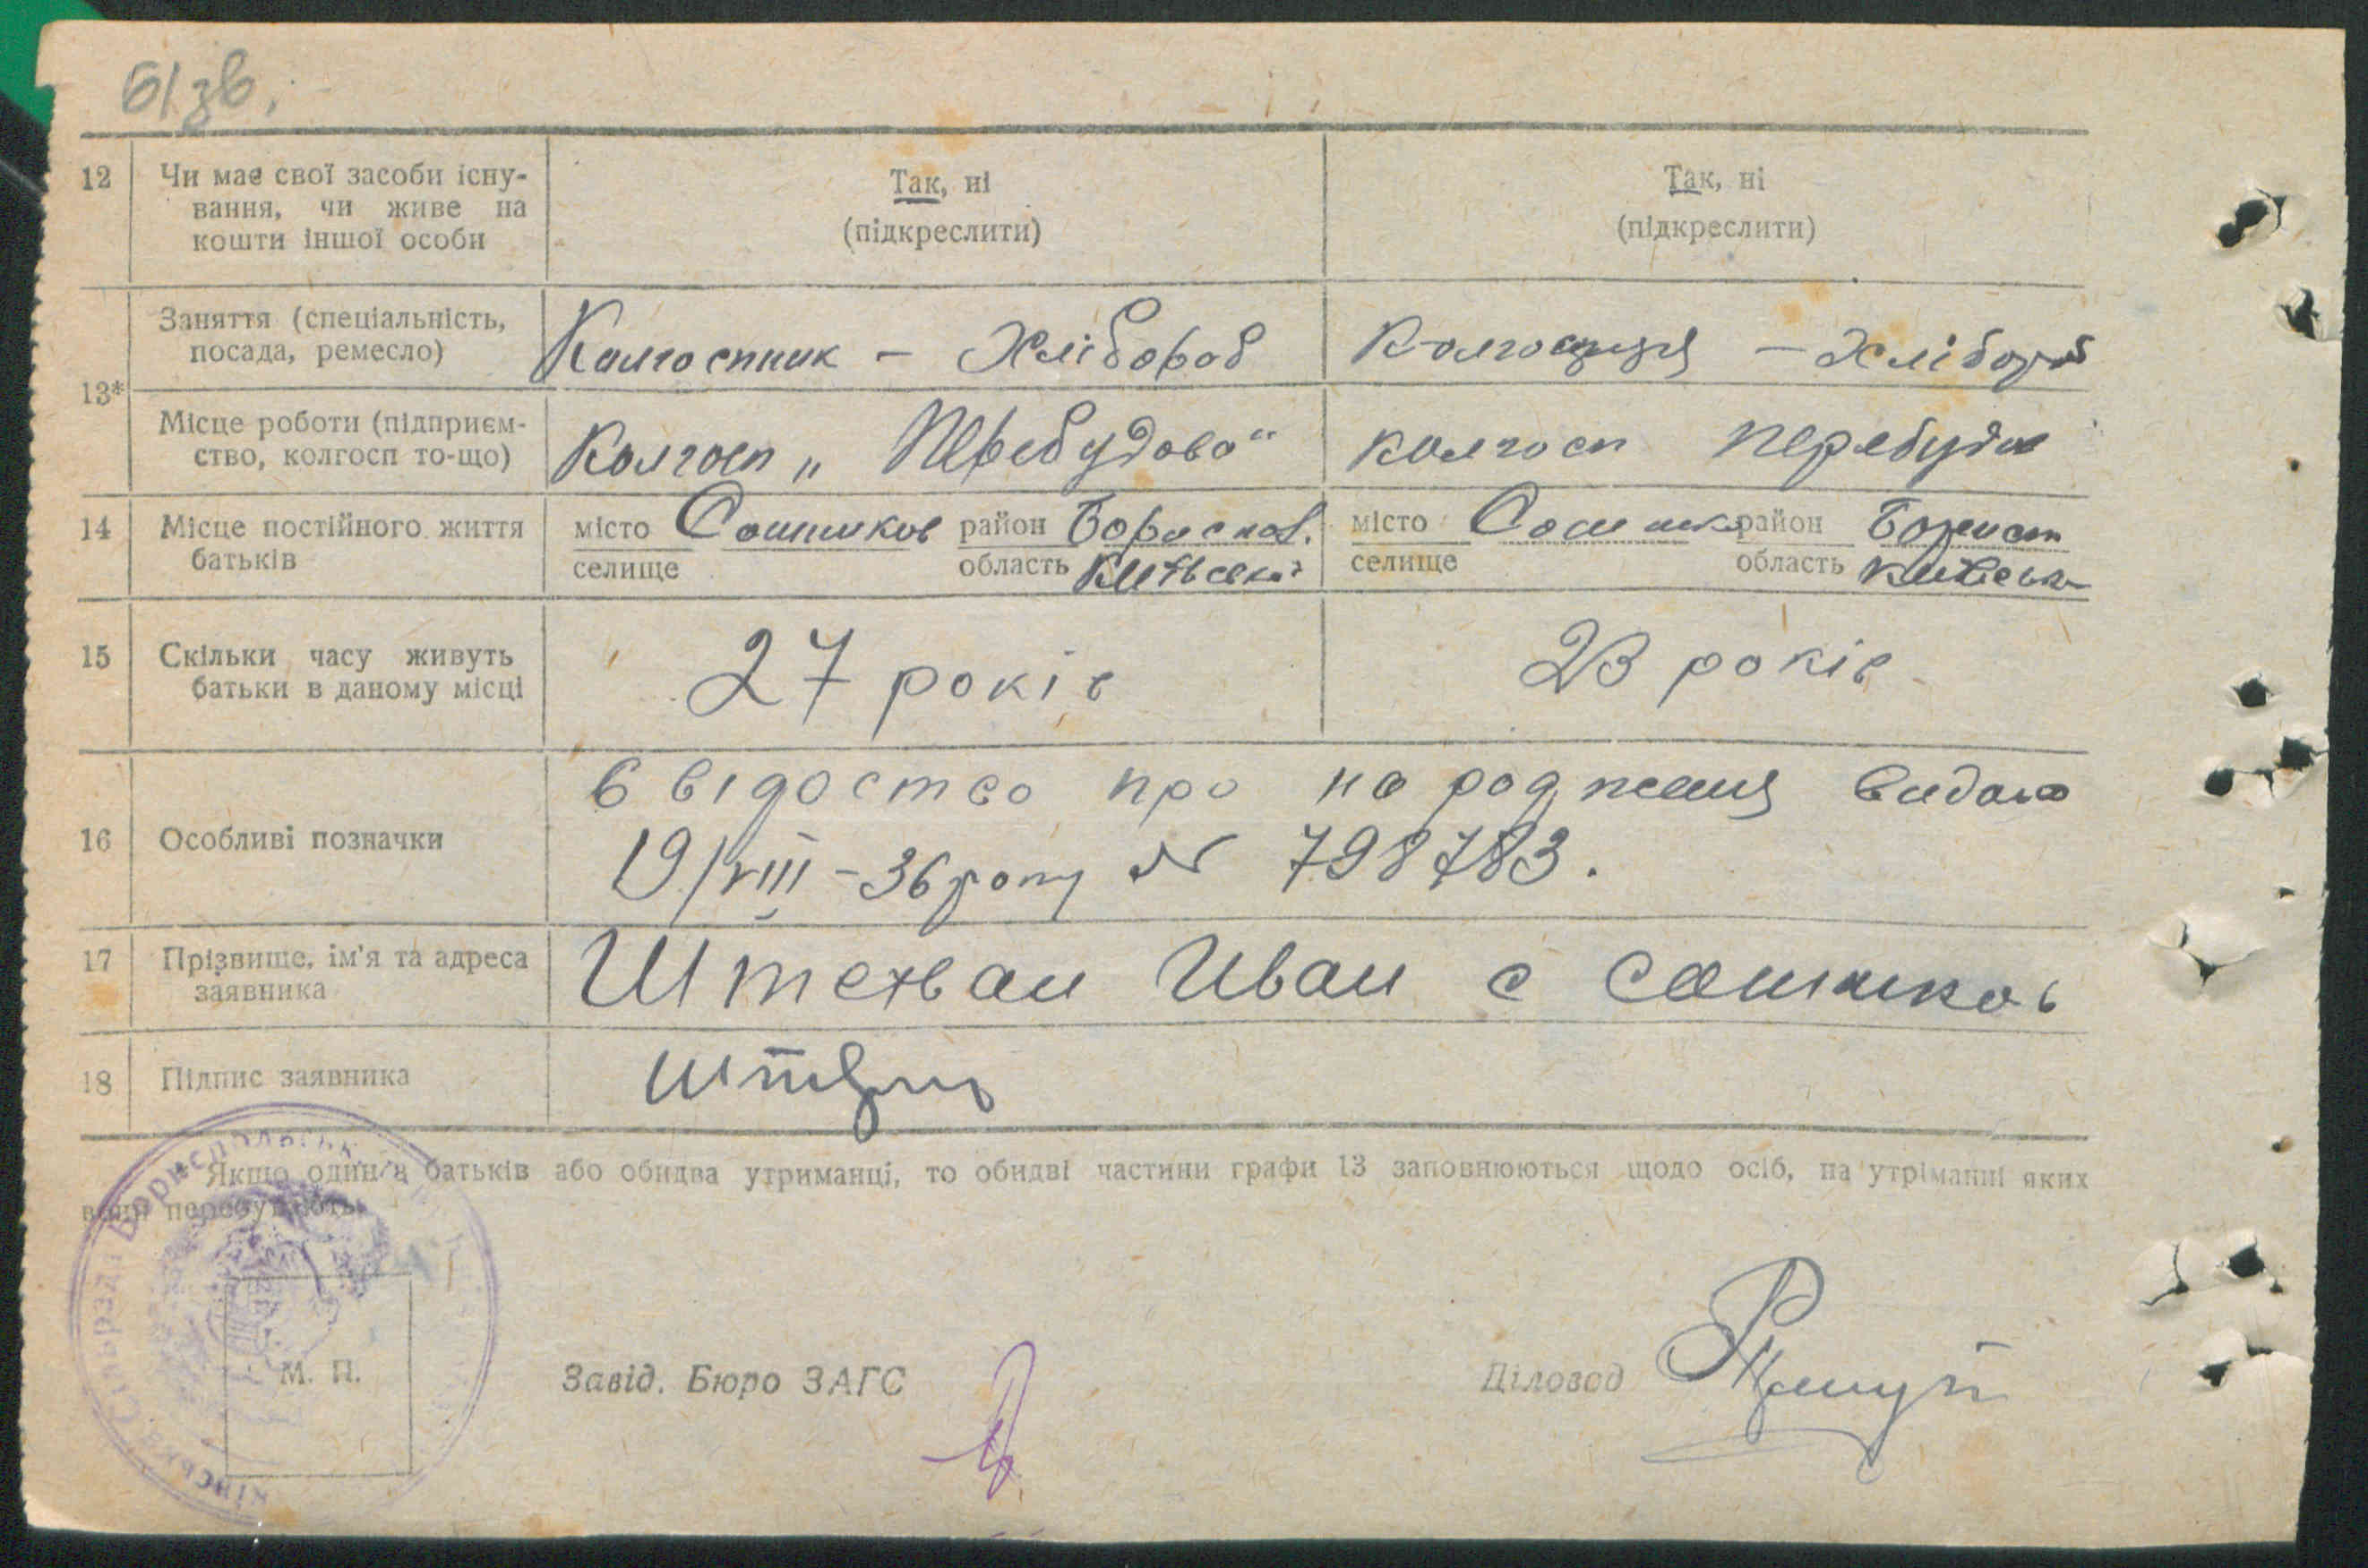 51зв.
12 Чи має свої засоби існу- Так, ні Так, ні
вання, чи живе на (підкреслити) (підкреслити)
кошти іншої особи
13* Заняття (спеціальність, Колгоспник – Хлібороб – Хлібороб
посада, ремесло)
Місце роботи (підприєм- Колгосп „Перебудова“ колгосп
ство, колгосп то-що)
14 Місце постійного життя місто Сошников район Бориспол. місто район
батьків селище область Київської селище область Київська
15 Скільки часу живуть 27 років 23 років
батьки в даному місці
16 Особливі позначки
Свідоство про народження видано
19/VIII – 36 року № 798783.
17 Прізвище, ім'я та адреса Иван с Сошников
заявника
18 Підпис заявника
Якщо один з батьків або обидва утриманці, то обидві частини графи 13 заповнюються щодо осіб, на утріманні яких
вони перебувають.
М. П.
Завід. Бюро ЗАГС Діловод